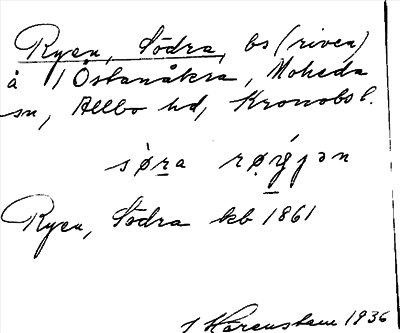 Ryen, Södra, bs (riven)
å 1 Östanåkra, Moheda
sn, Allbo hd, Kronobs l.
søra
Ryen, Södra kb 1861
Harenstam 1936